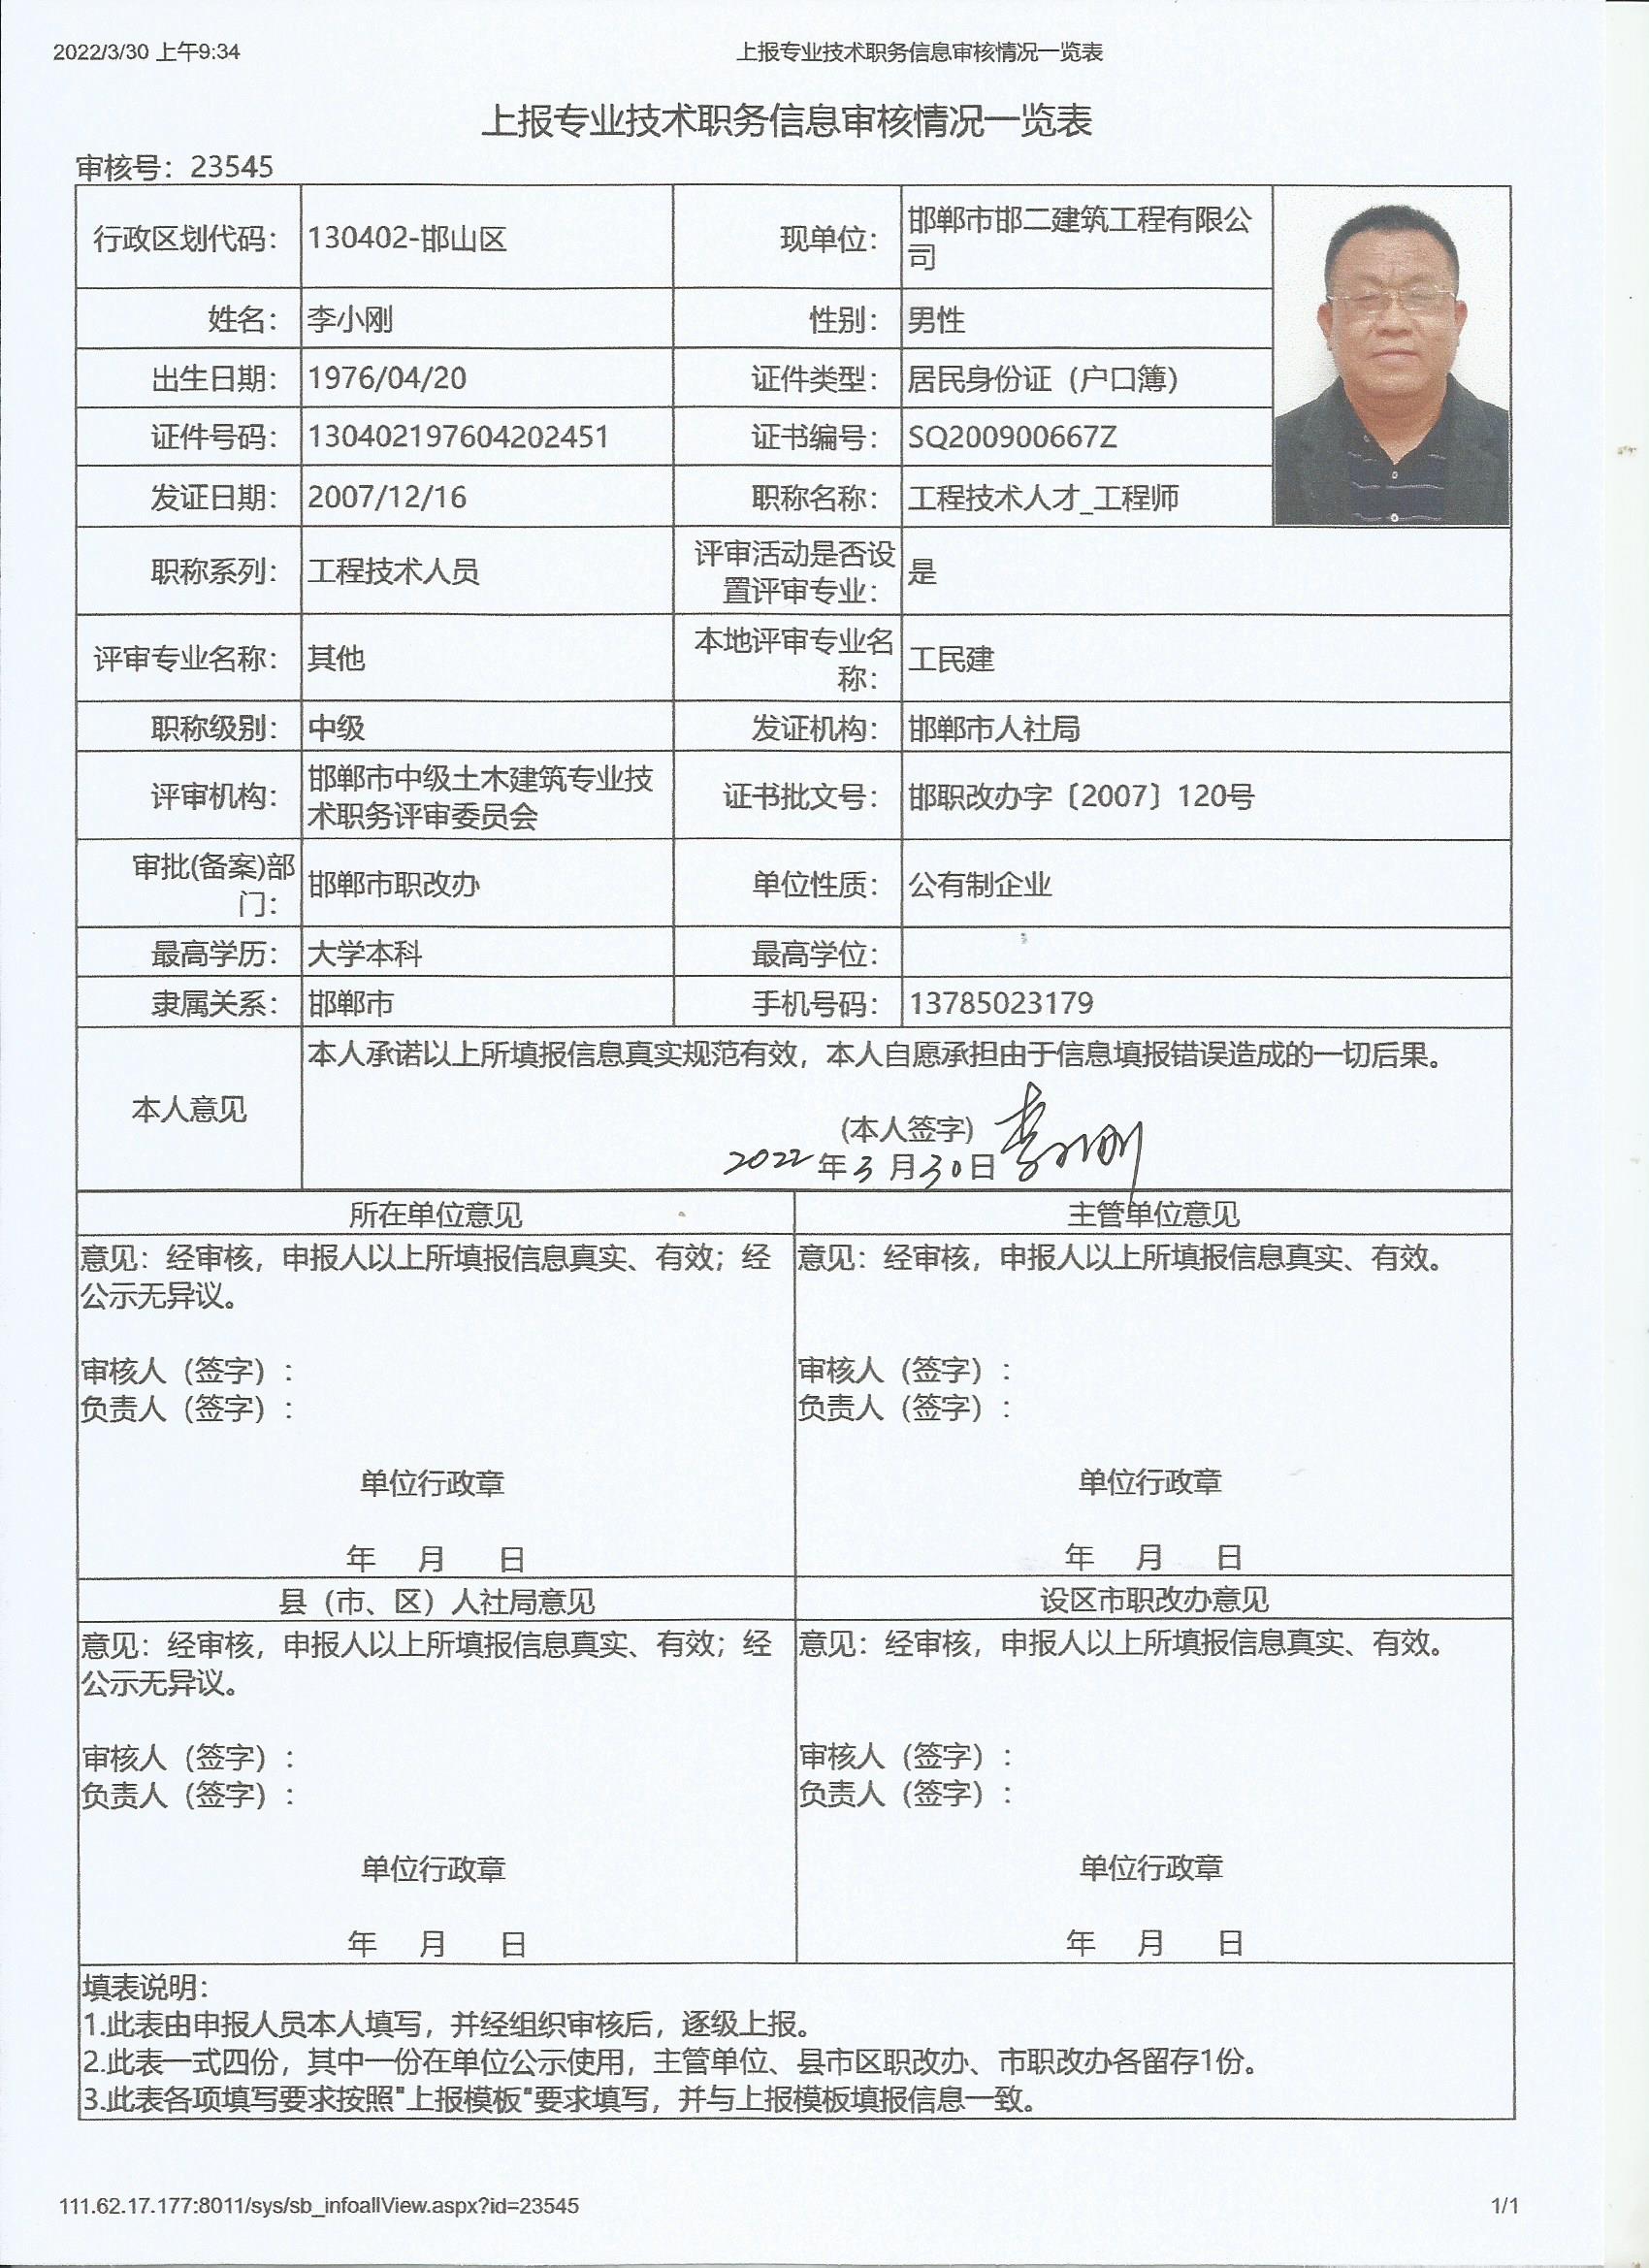 2022/3/30 上午9:34 上报专业技术职务信息审核情况一览表
上报专业技术职务信息审核情况一览表
审核号：23545
行政区划代码： 130402-邯山区 现单位： 邯郸市邯二建筑工程有限公
司
姓名： 李小刚 性别： 男性
出生日期： 1976/04/20 证件类型： 居民身份证（户口簿）
证件号码： 130402197604202451 证书编号： SQ200900667Z
发证日期： 2007/12/16 职称名称： 工程技术人才_工程师
职称系列： 工程技术人员 评审活动是否设
置评审专业： 是
评审专业名称： 其他 本地评审专业名
称： 工民建
职称级别： 中级 发证机构： 邯郸市人社局
评审机构： 邯郸市中级土木建筑专业技
术职务评审委员会 证书批文号： 邯职改办字〔2007〕120号
审批(备案)部
门： 邯郸市职改办 单位性质： 公有制企业
最高学历： 大学本科 最高学位：
隶属关系： 邯郸市 手机号码： 13785023179
本人意见 本人承诺以上所填报信息真实规范有效，本人自愿承担由于信息填报错误造成的一切后果。
(本人签字) 李小刚
2022 年 3 月 30 日
所在单位意见 主管单位意见
意见：经审核，申报人以上所填报信息真实、有效；经 意见：经审核，申报人以上所填报信息真实、有效。
公示无异议。
审核人（签字）： 审核人（签字）：
负责人（签字）： 负责人（签字）：
单位行政章 单位行政章
年 月 日 年 月 日
县（市、区）人社局意见 设区市职改办意见
意见：经审核，申报人以上所填报信息真实、有效；经 意见：经审核，申报人以上所填报信息真实、有效。
公示无异议。
审核人（签字）： 审核人（签字）：
负责人（签字）： 负责人（签字）：
单位行政章 单位行政章
年 月 日 年 月 日
填表说明：
1.此表由申报人员本人填写，并经组织审核后，逐级上报。
2.此表一式四份，其中一份在单位公示使用，主管单位、县市区职改办、市职改办各留存1份。
3.此表各项填写要求按照"上报模板"要求填写，并与上报模板填报信息一致。
111.62.17.177:8011/sys/sb_infoallView.aspx?id=23545 1/1